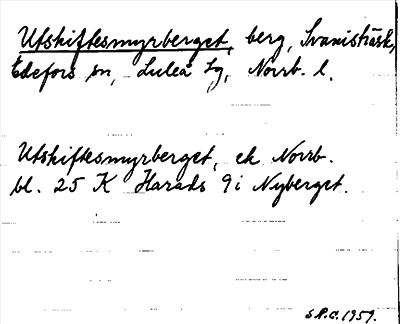 Utskiftesmyrberget, berg, Svanisträsk,
Edefors sn, Luleå lg, Norrb. l.
Utskiftesmyrberget, ek Norrb.
bl. 25 K Harads 9i Nyberget.
S.P.C. 1959.